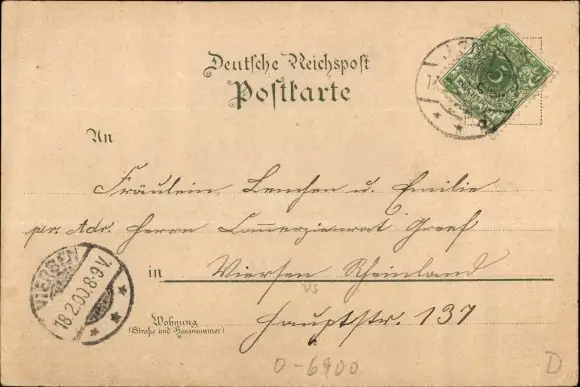 Deutsche Reichspost
Postkarte
An
Fräulein Lenchen u. Emilie
per. Adr. Herrn Commerzienrat Greef
in Viersen Rheinland
VS
Wohnung
(Straße und Hausnummer)
Hauptstr. 137
VIERSEN
18.2.00.8-9V.
0-6900
D